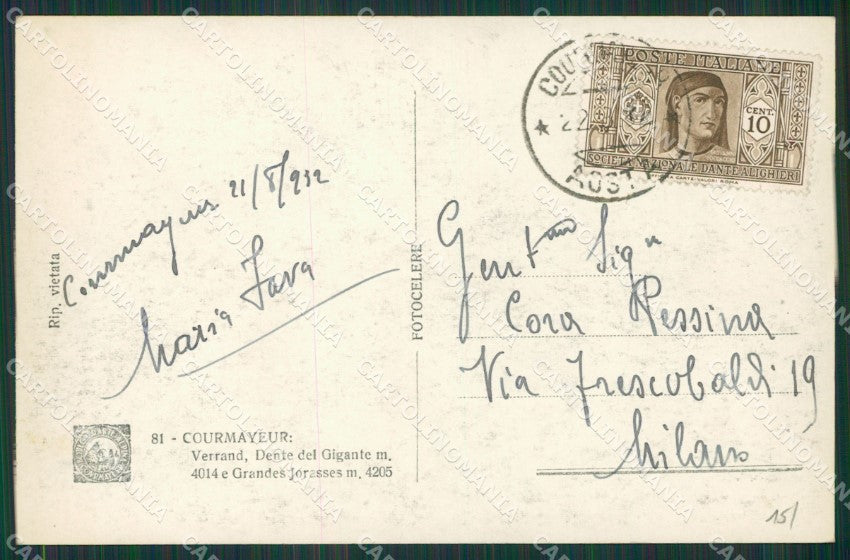 Courmayeur 21/8/932
Maria Fava
Rip. vietata
81 - COURMAYEUR:
Verrand, Dente del Gigante m.
4014 e Grandes Jorasses m. 4205
FOTOCELERE
POSTE ITALIANE
CENT.
10
SOCIETÀ NAZIONALE DANTE ALIGHIERI
AOSTA
Gent.ma Sig.a
Cora Pessina
Via Frescobaldi 19
Milano
15/
CARTOLINOMANIA